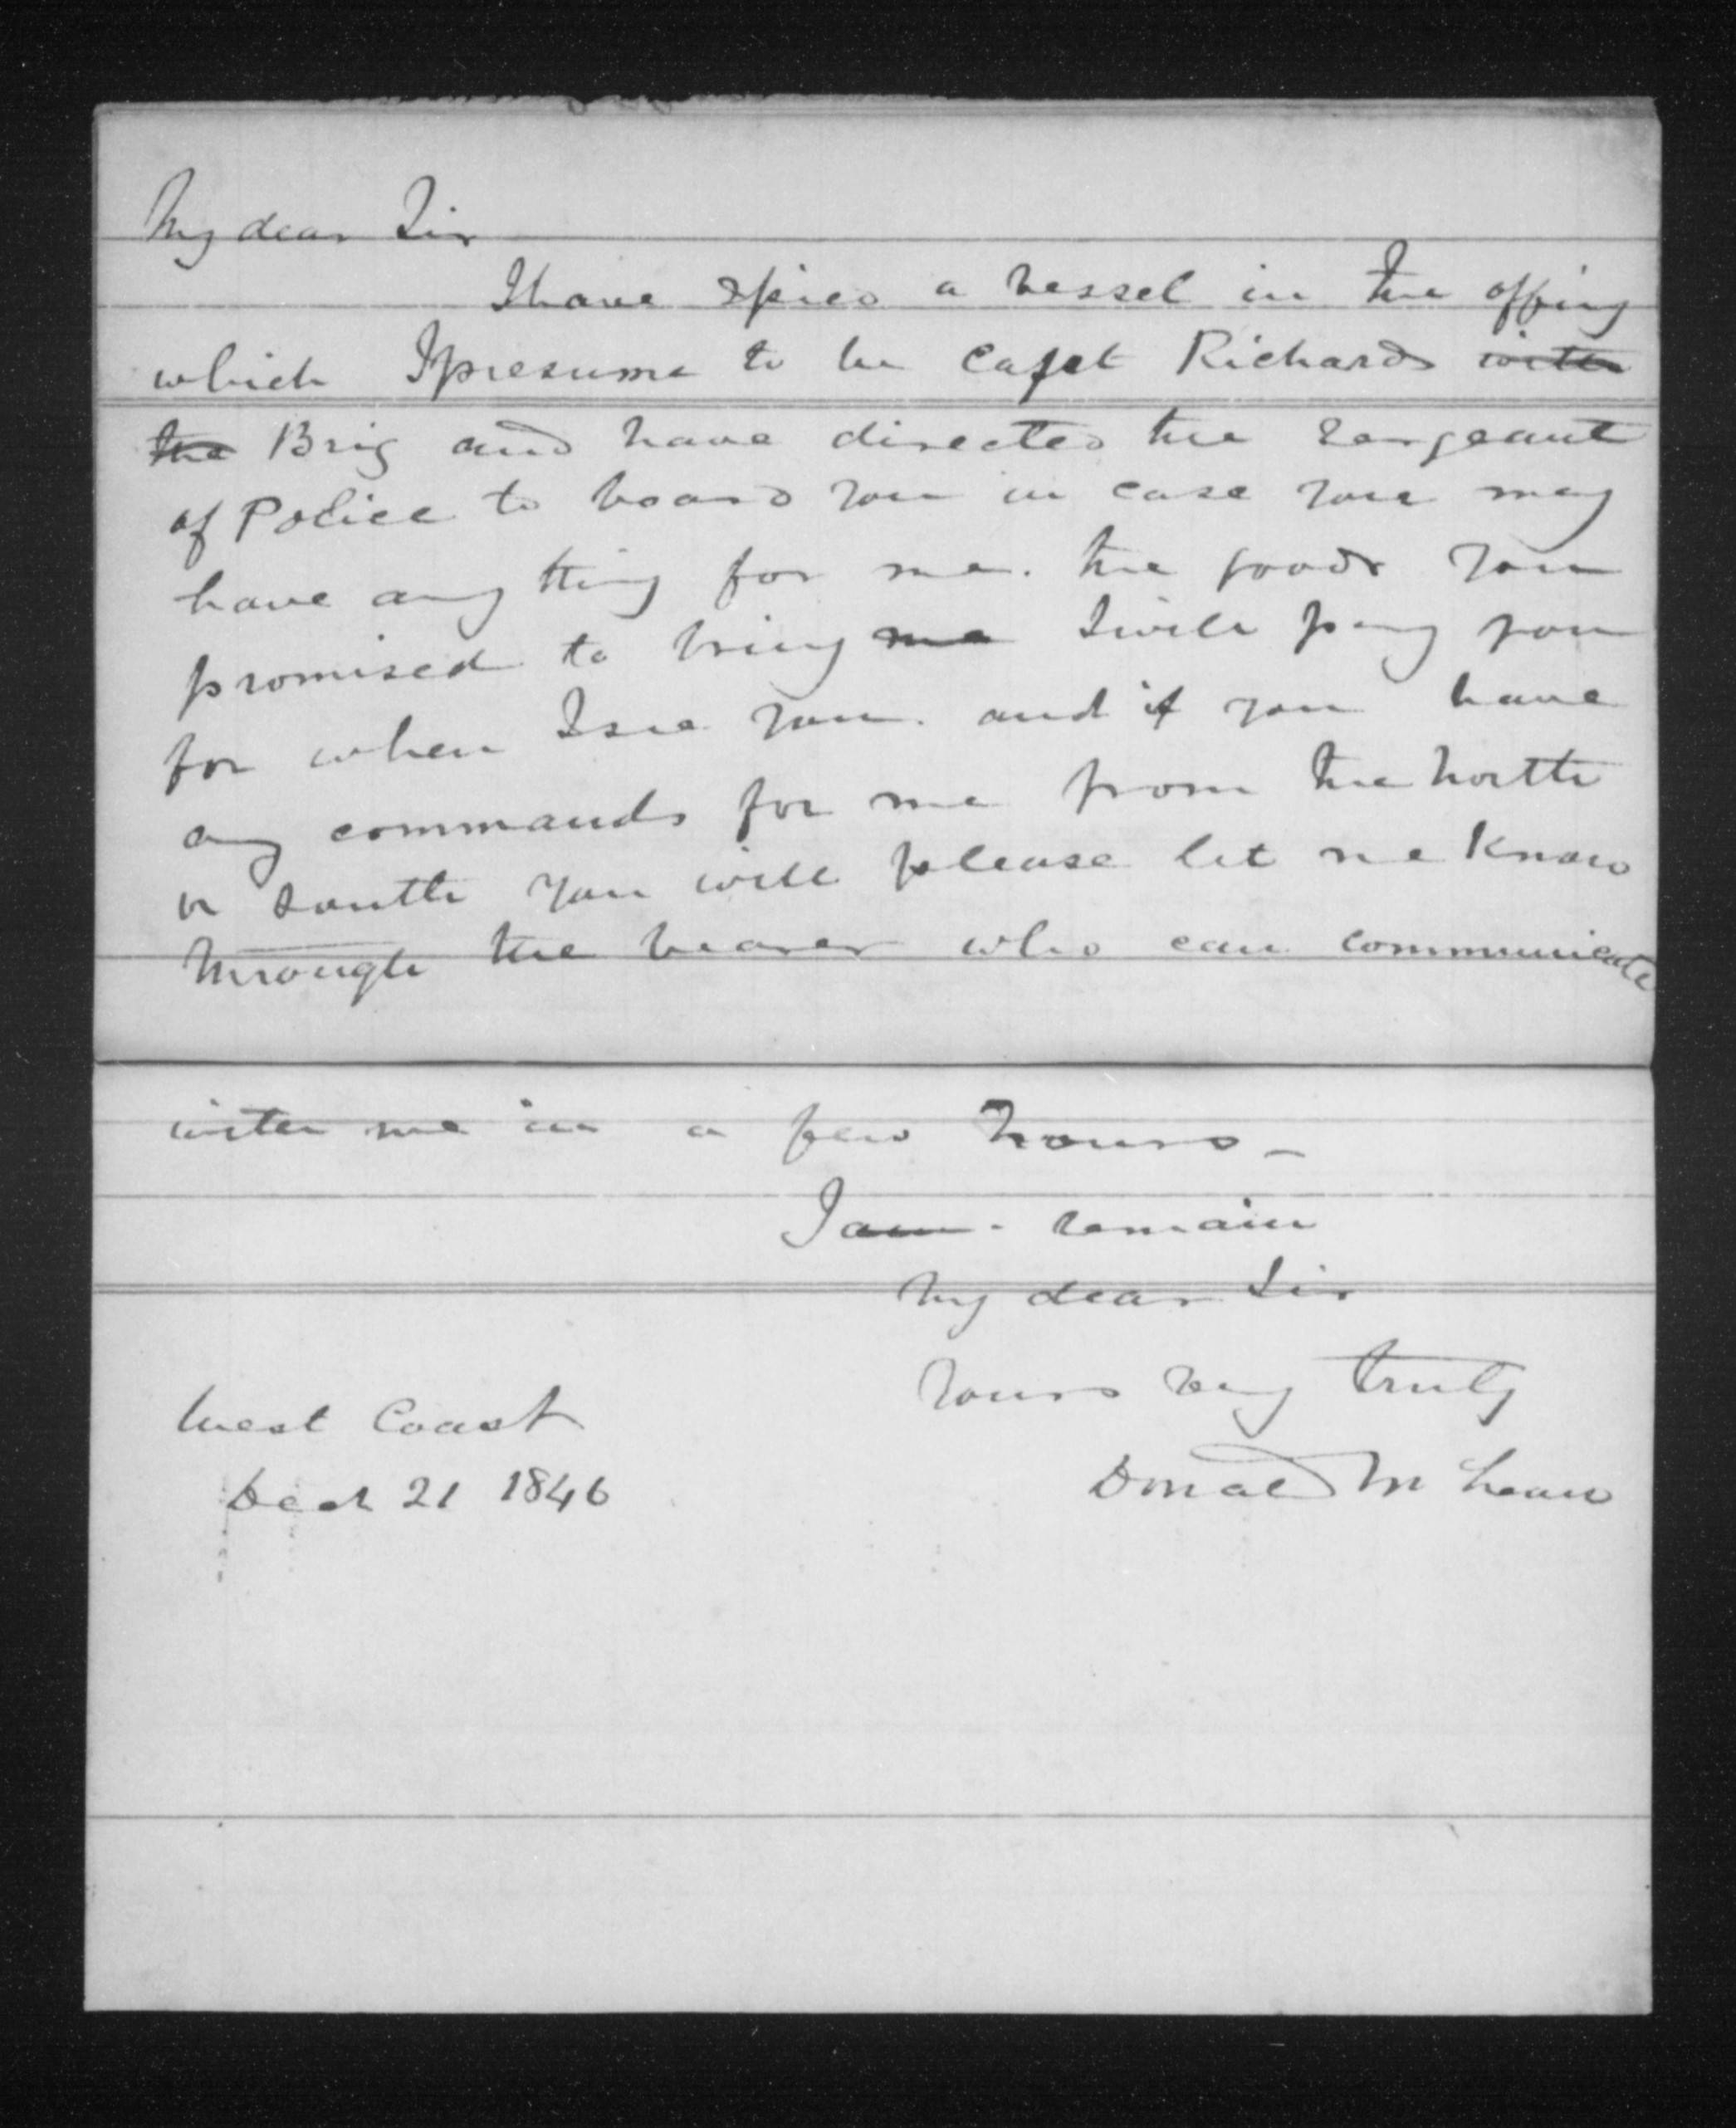 My dear Sir
I have spied a vessel in the offing
which I presume to be Capt Richards with
the Brig and have directed the Sergeant
of Police to board you in case you may
have any thing for me. the goods you
promised to bring me I will pay you
for when I see you. and if you have
any commands for me from the North
or South you will please let me know
through the bearer who can communicate
with me in a few hours -
I am - remain
My dear Sir
Yours very truly
West Coast
Donald McLean
Decr 21 1846